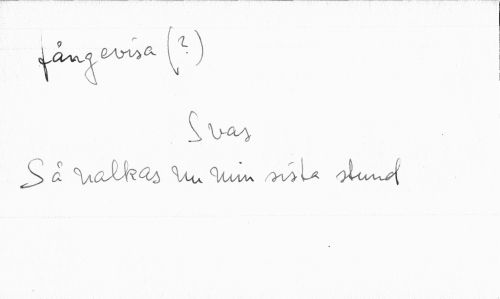 fångevisa (?)
Svas
Så nalkas nu min sista stund